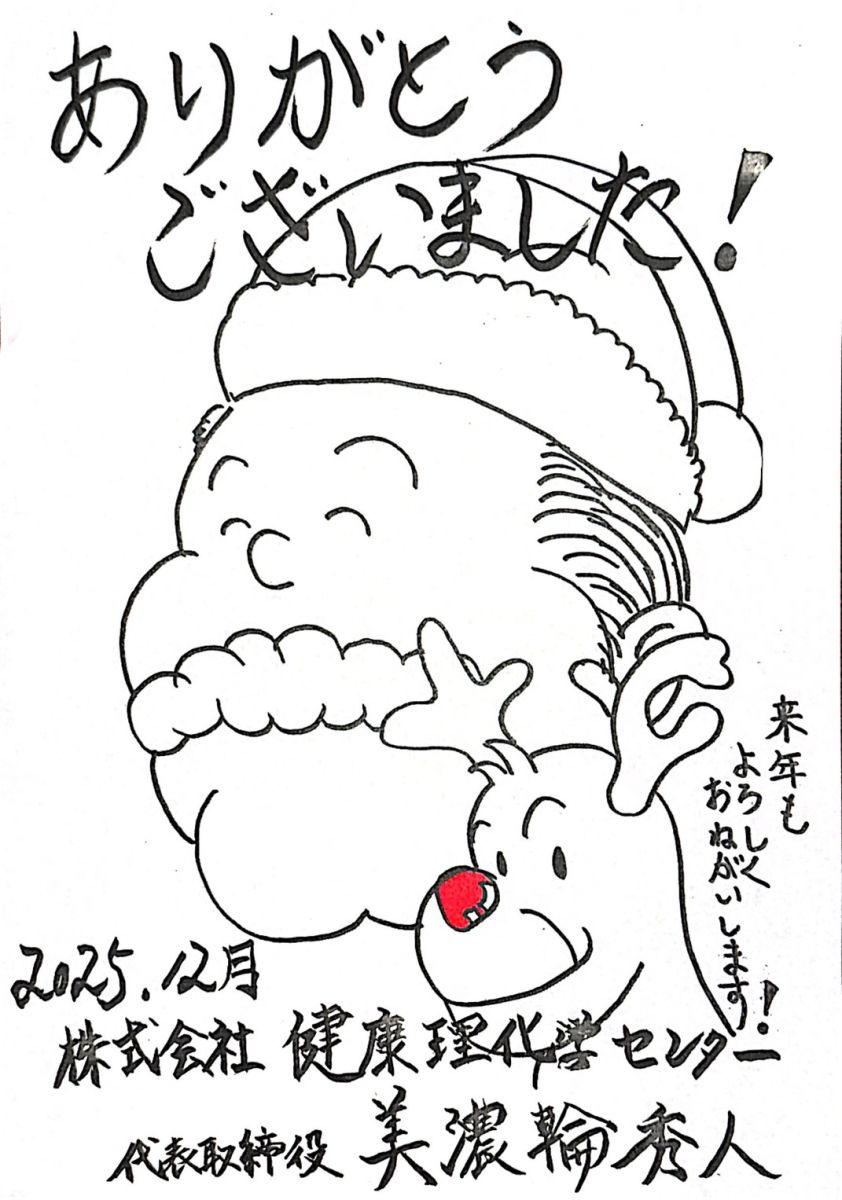 ありがとう
ございました！
来年も
よろしく
おねがいします！
2025.12月
株式会社 健康理化学センター
代表取締役 美濃輪秀人